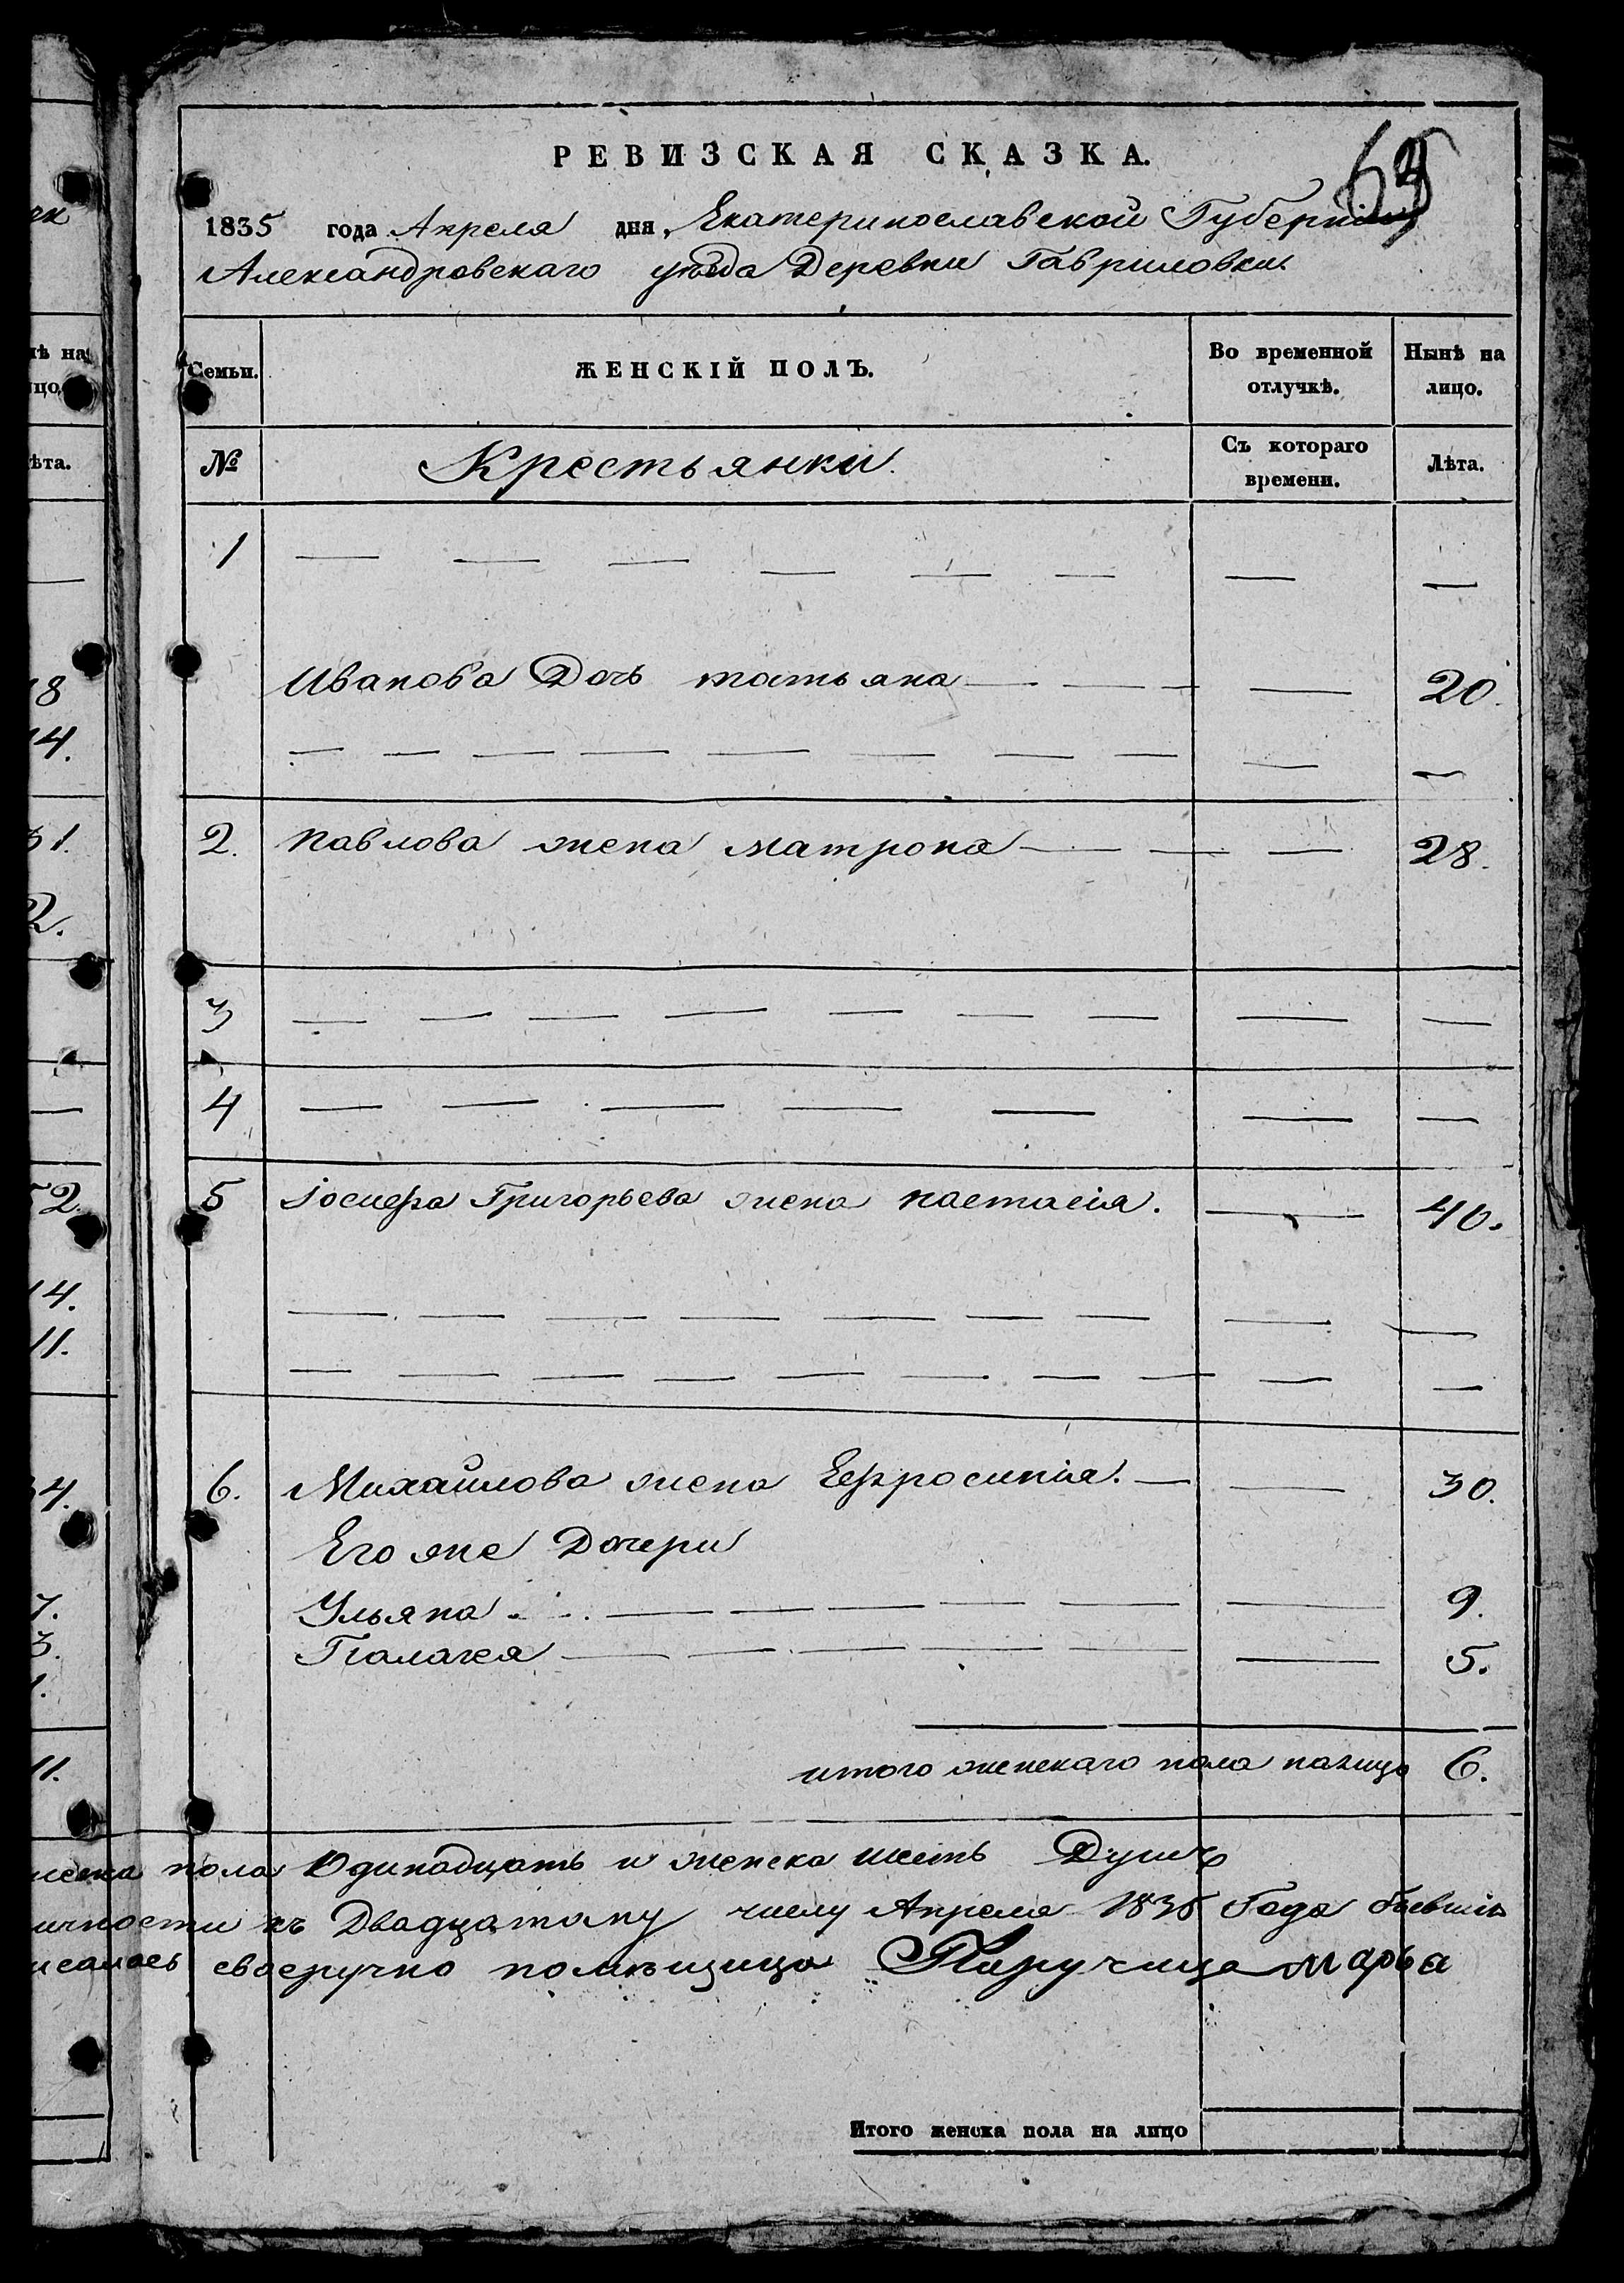 РЕВИЗСКАЯ СКАЗКА.
1835 года Апреля дня, Екатеринославской Губерніи
Александровскаго уѣзда Деревни Гавриловки
Семьи.
ЖЕНСКІЙ ПОЛЪ.
Во временной отлучкѣ.
Нынѣ на лицо.
№
Крестьянки.
Съ котораго времени.
Лѣта.
1 — — — — — — — —
Иванова Дочь татьяна — — — — 20.
— — — — — — — — — —
2. павлова жена матрона — — — 28.
3 — — — — — — — — —
4 — — — — — — —
5 Іосифа Григорьева жена настасія. — 40.
— — — — — — — — —
— — — — — — — — — —
6. Михайлова жена Ефросинія. — — 30.
Его же Дочери
Ульяна — — — — — — 9.
Палагея — — — — — — 5.
итого женскаго пола налицо 6.
пола Одинадцать и женска шесть Душъ
къ Двадцатому числу Апреля 1835 Года бывшія
своеручно помѣщица Поручица марья
Итого женска пола на лицо